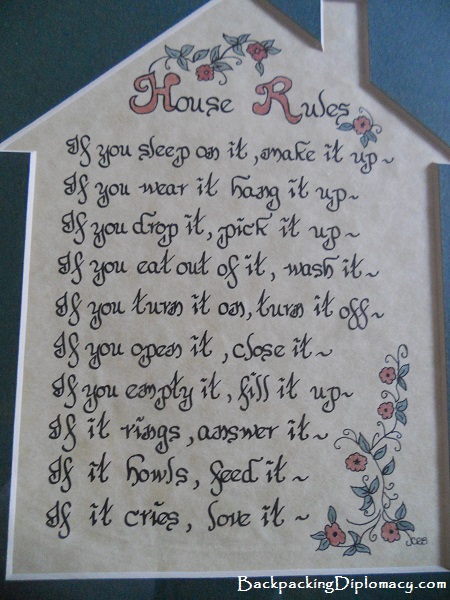 House Rules
If you sleep on it, make it up~
If you wear it hang it up~
If you drop it, pick it up~
If you eat out of it, wash it~
If you turn it on, turn it off~
If you open it, close it~
If you empty it, fill it up~
If it rings, answer it~
If it howls, feed it~
If it cries, love it~
BackpackingDiplomacy.com